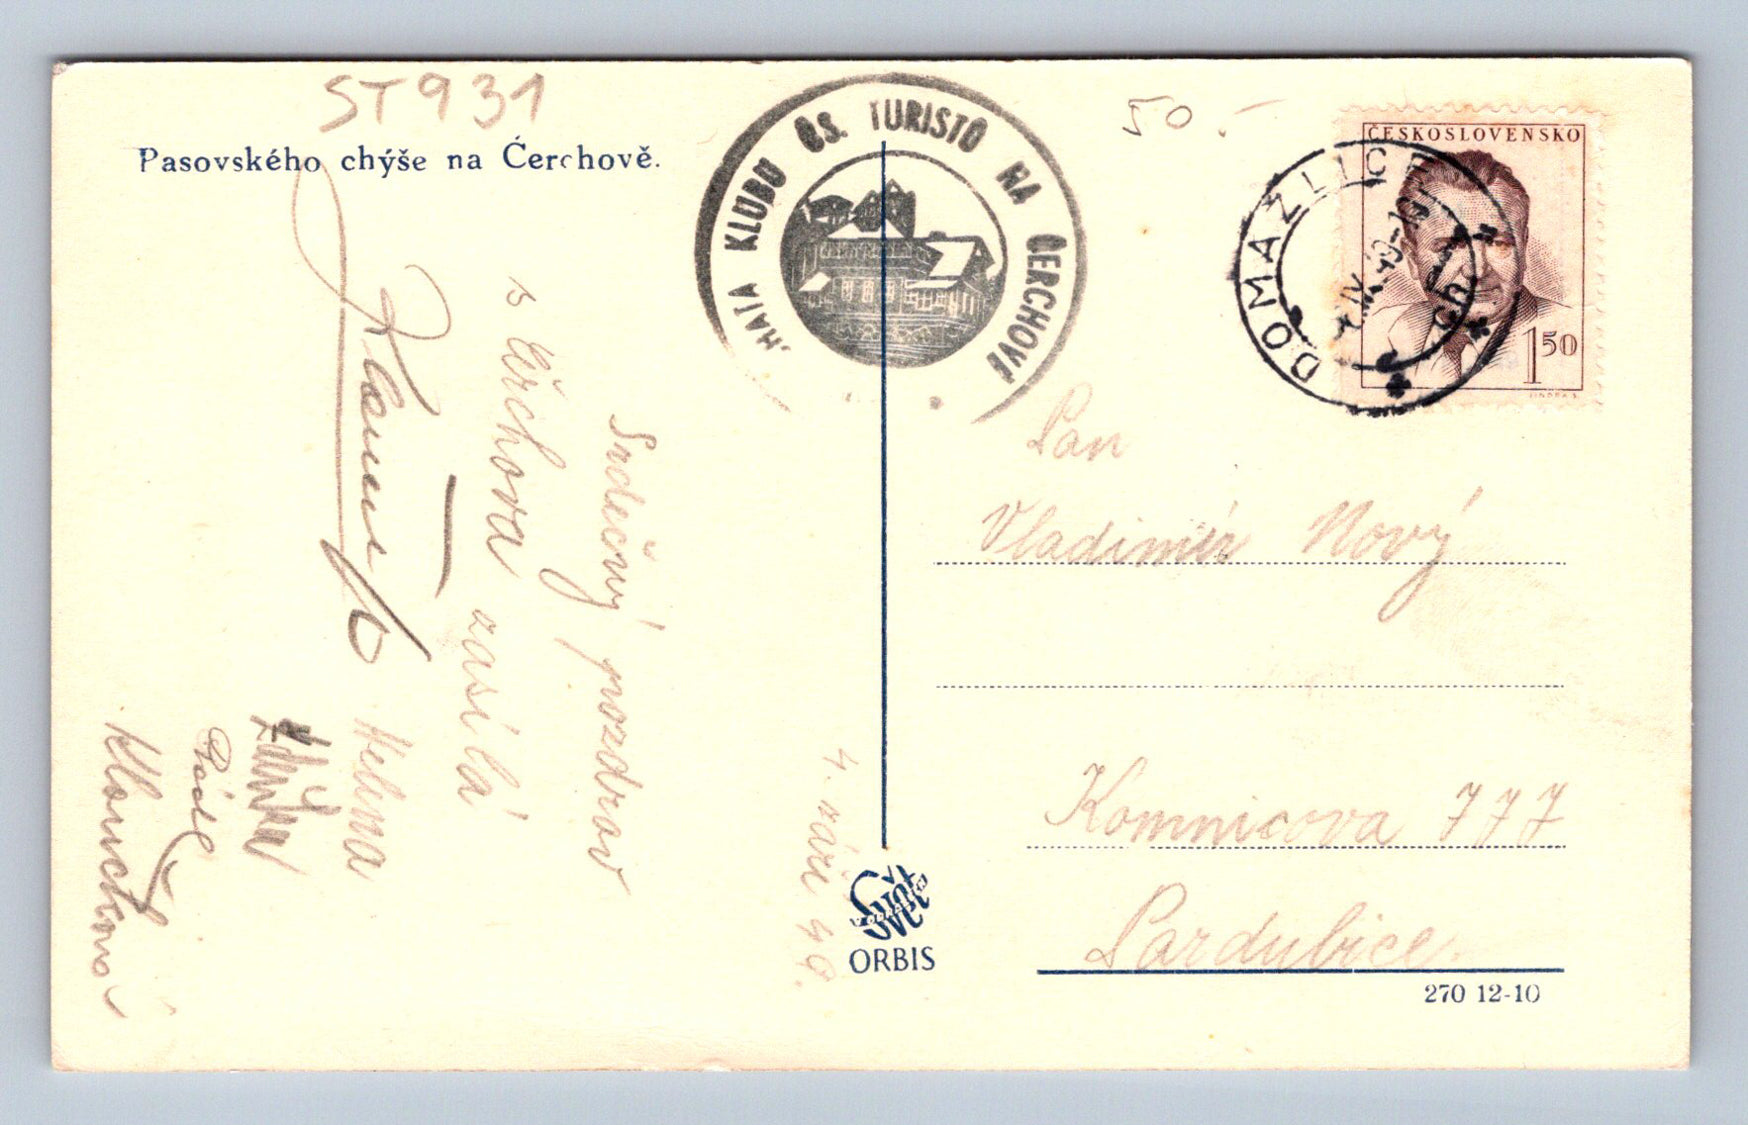 ST 931
Pasovského chýše na Čerchově.
CHATA KLUBU ČS. TURISTŮ NA ČERCHOVĚ
50.-
ČESKOSLOVENSKO
1 50
DOMAŽLICE
Srdečný pozdrav
s Čerchova zasílá
Helena
Kloučková
4. září 49.
Pan
Vladimír Nový
Komnicova 777
Pardubice.
Svět
ORBIS
270 12-10